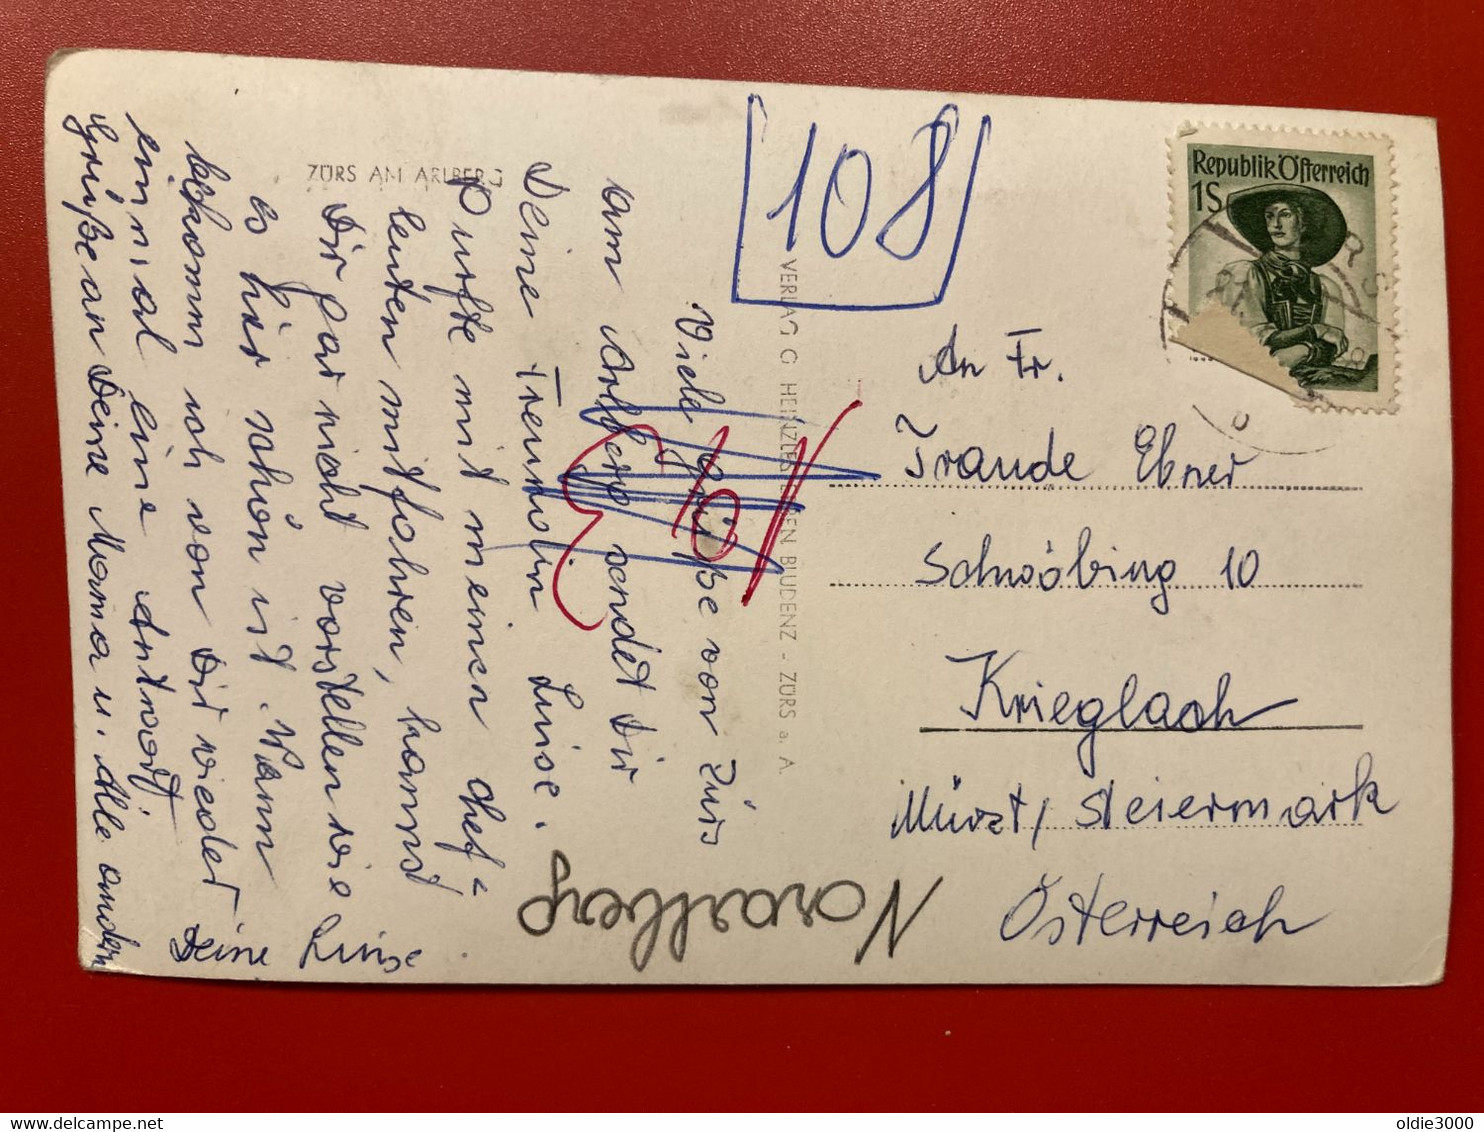 ZÜRS AM ARLBERG
Viele Grüße von Zürs
am Arlberg sendet Dir
Deine Freundin Luise.
Durfte mit meinen Chef=
leuten mitfahren, kannst
Dir gar nicht vorstellen wie
es hier schön ist. Wann
bekomm ich von Dir wieder
einmal eine Antwort
Grüße an Deine Mama u. Alle andern
Deine Luise
108
10
VERLAG C HEINZLE BLUDENZ - ZÜRS a. A.
Vorarlberg
Republik Österreich
1S
An Fr.
Traude Ebner
Schwöbing 10
Krieglach
Mürzt/ Steiermark
Österreich
delcampe.net
oldie3000